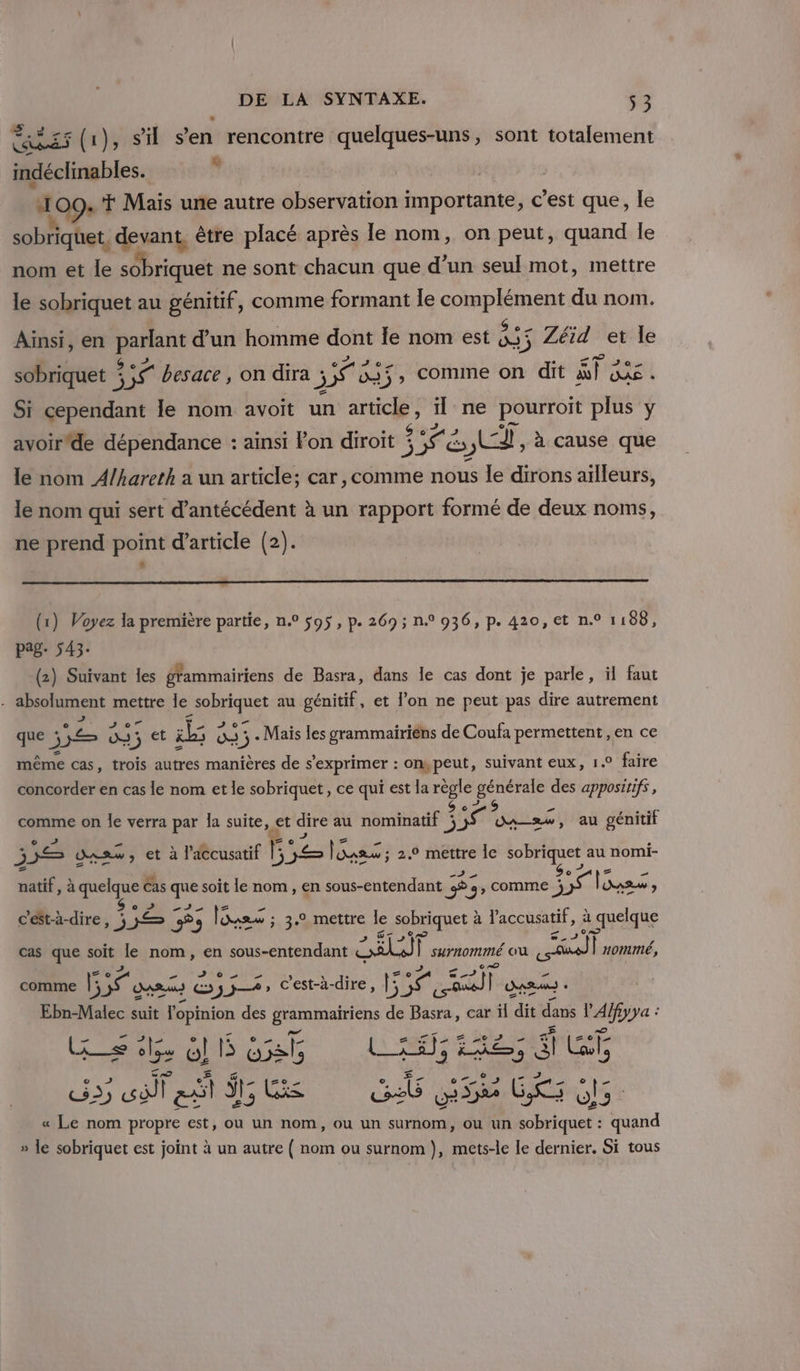 DE LA SYNTAXE. 53
(1), s'il s'en rencontre quelques-uns, sont totalement
indéclinables.
109. † Mais une autre observation importante, c'est que, le
sobriquet devant être placé après le nom, on peut, quand le
nom et le sobriquet ne sont chacun que d'un seul mot, mettre
le sobriquet au génitif, comme formant le complément du nom.
Ainsi, en parlant d'un homme dont le nom est زَيْدٌ Zéïd et le
sobriquet كُرْزٌ besace, on dira زَيْدُ كُرْزٍ, comme on dit عَبْدُ ٱللّٰهِ.
Si cependant le nom avoit un article, il ne pourroit plus y
avoir de dépendance : ainsi l'on diroit ٱلْحَارِثُ كُرْزٌ, à cause que
le nom Alhareth a un article; car, comme nous le dirons ailleurs,
le nom qui sert d'antécédent à un rapport formé de deux noms,
ne prend point d'article (2).
(1) Voyez la première partie, n.º 595, p. 269; n.º 936, p. 420, et n.º 1188,
pag. 543.
(2) Suivant les grammairiens de Basra, dans le cas dont je parle, il faut
absolument mettre le sobriquet au génitif, et l'on ne peut pas dire autrement
que زَيْدُ كُرْزٍ et زَيْدُ بَطَّةَ. Mais les grammairiens de Coufa permettent, en ce
même cas, trois autres manières de s'exprimer : on peut, suivant eux, 1.º faire
concorder en cas le nom et le sobriquet, ce qui est la règle générale des appositifs,
comme on le verra par la suite, et dire au nominatif سَعِيدٌ كُرْزٌ, au génitif
سَعِيدٍ كُرْزٍ, et à l'accusatif سَعِيدًا كُرْزًا; 2.º mettre le sobriquet au nomi-
natif, à quelque cas que soit le nom, en sous-entendant وَهُوَ, comme سَعِيدًا كُرْزٌ,
c'est-à-dire, سَعِيدًا وَهُوَ كُرْزٌ; 3.º mettre le sobriquet à l'accusatif, à quelque
cas que soit le nom, en sous-entendant surnommé ou nommé,
comme مَرَرْتُ بِسَعِيدٍ كُرْزًا, c'est-à-dire, بِسَعِيدٍ كُرْزًا.
Ebn-Malec suit l'opinion des grammairiens de Basra, car il dit dans l'Alfiyya :
وَٱسْمًا أَتَى وَكُنْيَةً وَلَقَبَا وَأَخِّرَنْ ذَا إِنْ سِوَاهُ صَحِبَا
وَإِنْ يَكُونَا مُفْرَدَيْنِ فَأَضِفْ حَتْمًا وَإِلَّا أَتْبِعِ ٱلَّذِى رَدِفْ
« Le nom propre est, ou un nom, ou un surnom, ou un sobriquet : quand
» le sobriquet est joint à un autre (nom ou surnom), mets-le le dernier. Si tous